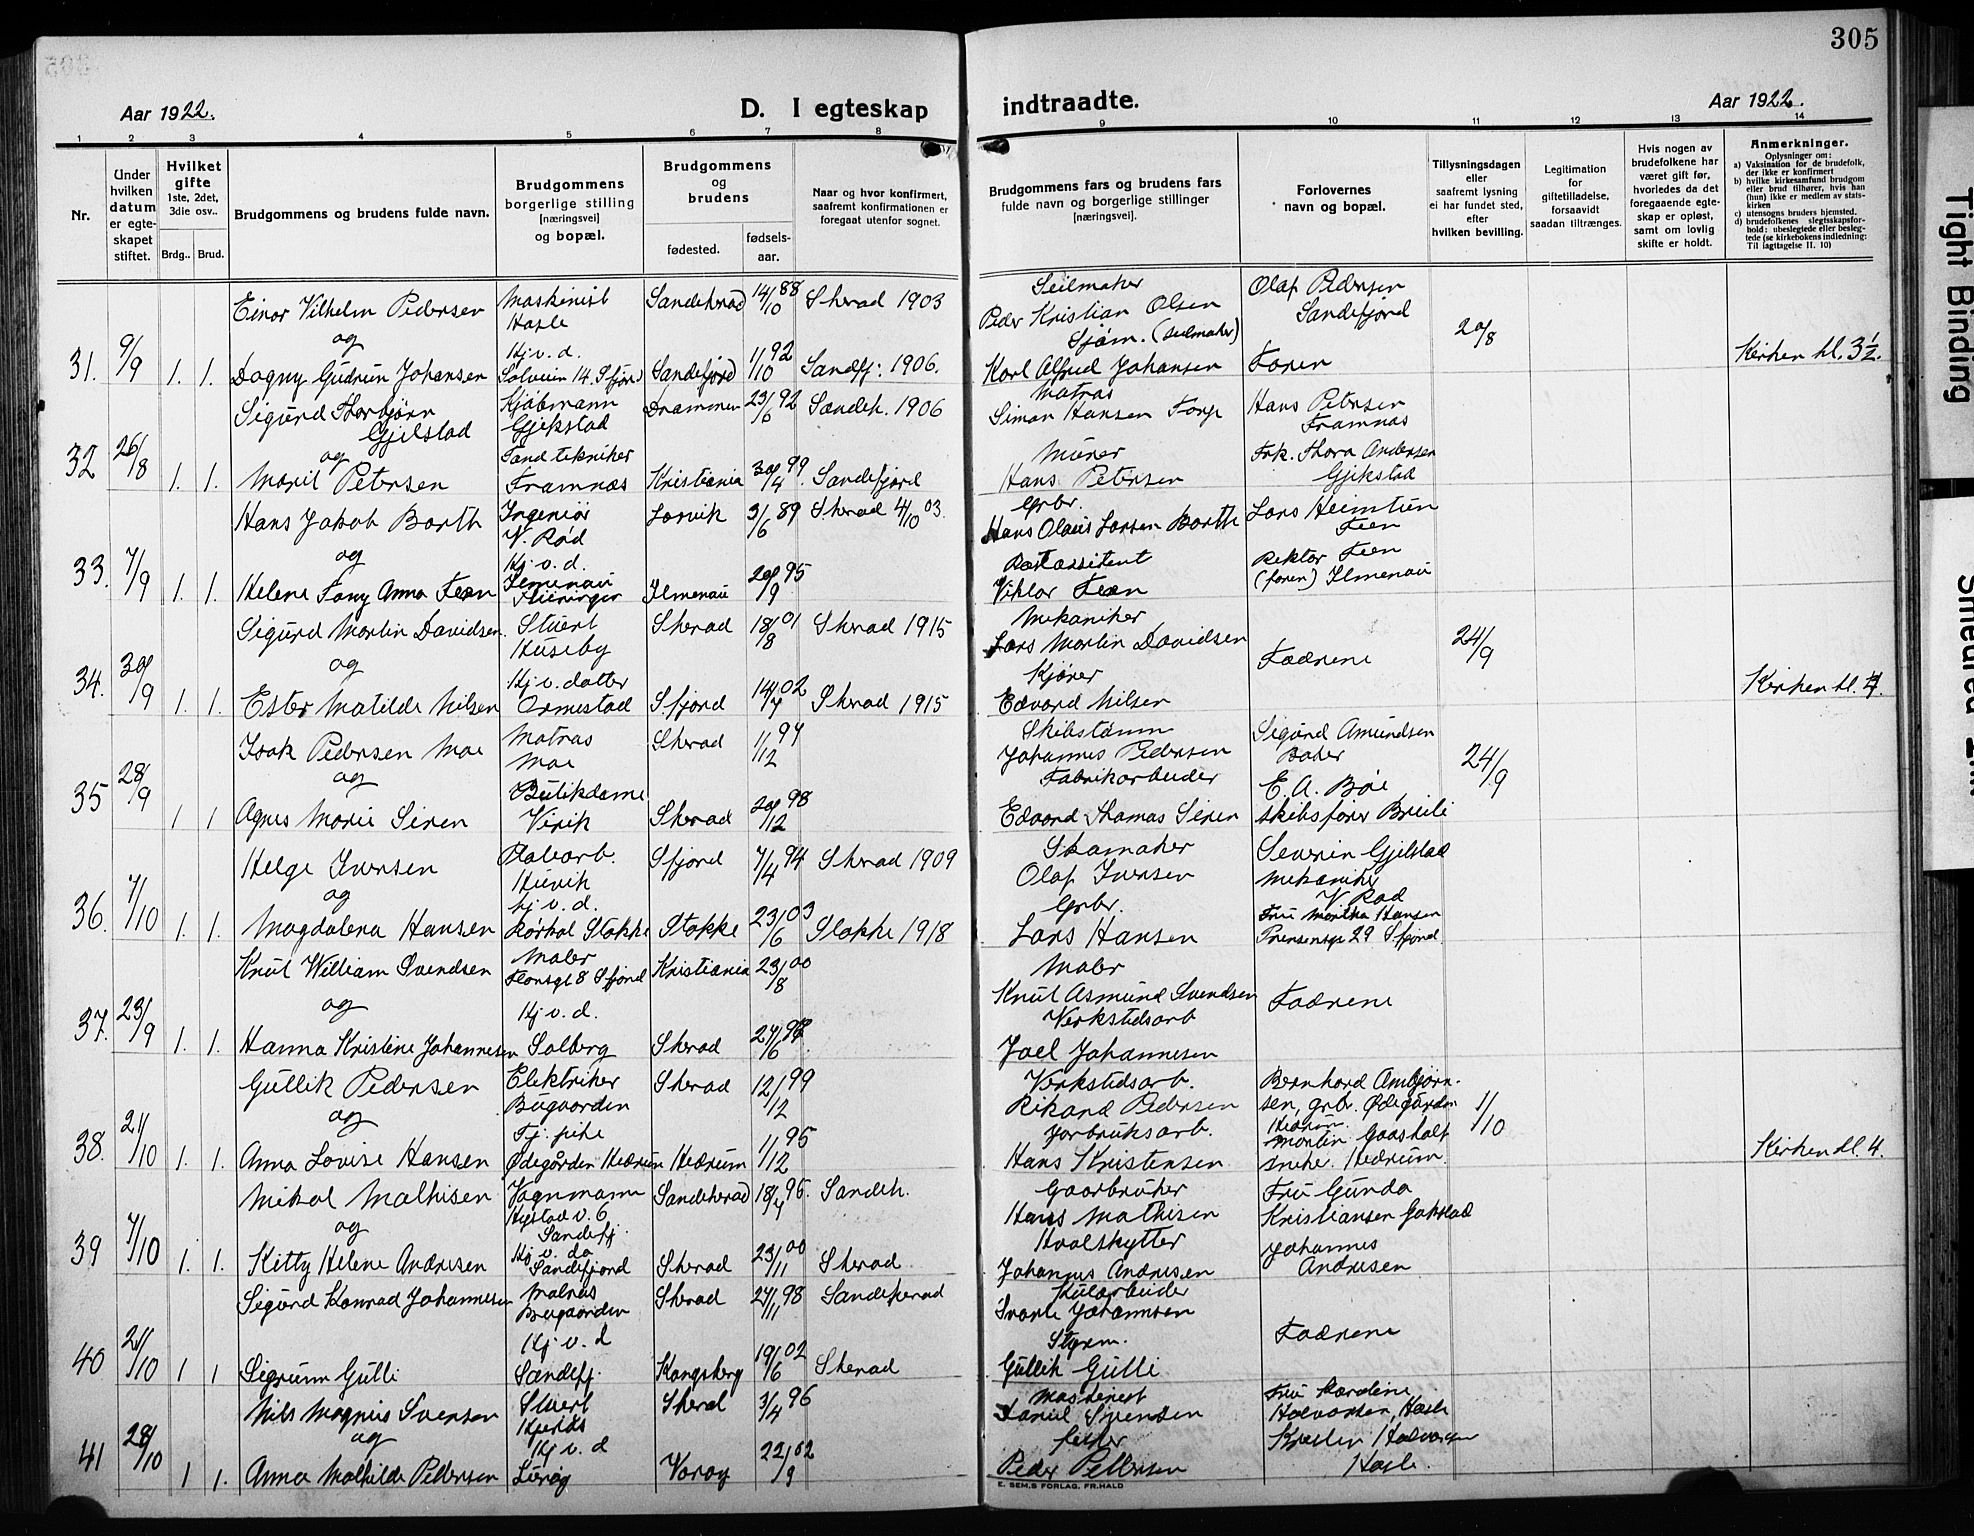 305
Aar 1922.
D. I egteskap
indtraadte.
Aar 1922.
1 2 3 4 5 6 7 8 9 10 11 12 13 14
Nr.
Under hvilken datum er egteskapet stiftet.
Hvilket gifte 1ste, 2det, 3die osv..
Brdg.. Brud.
Brudgommens og brudens fulde navn.
Brudgommens borgerlige stilling [næringsvei] og bopæl.
Brudgommens og brudens
fødested.
fødsels-aar.
Naar og hvor konfirmert, saafremt konfirmationen er foregaat utenfor sognet.
Brudgommens fars og brudens fars fulde navn og borgerlige stillinger [næringsvei].
Forlovernes navn og bopæl.
Tillysningsdagen eller saafremt lysning ei har fundet sted, efter hvilken bevilling.
Legitimation for giftetilladelse, forsaavidt saadan tiltrænges.
Hvis nogen av brudefolkene har været gift før, hvorledes da det foregaaende egteskap er opløst, samt om lovlig skifte er holdt.
Anmerkninger.
Oplysninger om:
a) Vaksination for de brudefolk, der ikke er konfirmert
b) hvilke kirkesamfund brudgom eller brud tilhører, hvis han (hun) ikke er medlem av statskirken
c) utensogns bruders hjemsted.
d) brudefolkenes slegtsskapsforhold: ubeslegtede eller beslegtede (se kirkebokens indledning: Til Iagttagelse II. 10)
Einar Vilhelm Pedersen Maskinist Sandeherad 14/10 88 Sherad 1903 Seilmaker Olaf Pedersen
Hasle Peder Kristian Olsen Sandefjord
og Hj. v. d. Sjøm. (seilmaker) 20/8
31. 9/9 1. 1. Dagny Gudrun Johansen 14 Sfjord Sandefjord 1/10 92 Sandfj: 1906. Karl Alfred Johansen Faren Kirken kl. 3½.
Sigurd Thorbjørn Gjelstad Kjøbmann Drammen 23/6 92 Sandeh. 1906 Matros Hans Petersen
Gjekstad Simon Hansen Framnæs
og Tandtekniker Murer Frk. Thora Andersen
32 26/8 1. 1. Marit Petersen Framnæs Kristiania 30/4 99. Sandefjord Hans Petersen Gjekstad
Hans Jakob Barth Ingeniør Larvik 3/6 89 Sherad 4/10 03. Grbr. Lars Heimtun
V. Rød Hans Olaus Larsen Barth Feen
og Hj. v. d. Postassistent Rektor Feen
33. 7/9 1. 1. Helene Fany Anna Feen Ilmenau Ilmenau 20/9 95 Viktor Feen (faren) Ilmenau
Sigurd Martin Davidsen Stuert Sherad 18/8 01 Sherad 1915 Mekaniker
Huseby Lars Martin Davidsen Fædrene 24/9
og Hj. v. datter Kjører
34. 30/9 1. 1. Ester Matilde Nilsen Ormestad Sfjord 14/7 02 Sherad 1915 Edvard Nilsen Kirken kl. 4.
Isak Pedersen Moe Matros Sherad 1/12 94 Skibstømm Sigurd Amundsen
Moe Johannes Pedersen Baker
og Butikdame Fabrikarbeider E. A. Bøe 24/9
35 28/9 1 1 Agnes Marie Siren Virik Sherad 20/12 98 Edvard Thomas Siren skibsfører
Helge Iversen Sfjord 7/4 94 Sherad 1909 Skomaker Severin Gjelstad
Huvik Olaf Iversen mekaniker
og hj. v. d. Grbr. V Rød
36. 7/10 1. 1. Magdalena Hansen Stokke Stokke 23/6 03 Stokke 1918 Lars Hansen Fru Martha Hansen
Prinsensgt 29 Sfjord
Knut William Svendsen Maler Kristiania 23/8 00 Maler
8 Sfjord Knut Asmund Svendsen Fædrene
og Hj. v. d. Verkstedsarb
37. 23/9 1. 1. Hanna Kristine Johannesen Solberg Sherad Joel Johannesen
Gullik Pedersen Elektriker Sherad 12/12 99 Verkstedsarb. Bernhard Ambjørn-
Bugaarden Rikard Pedersen sen, grbr. Ødegården 1/10
og Tj. pike Jorbruksarb. Hedrum.
38. 21/10 1. 1. Anna Lovise Hansen Ødegården Hedrum Hedrum 1/12 95 Hans Kristensen Martin Gaasholt Kirken kl. 4.
snekr. Hedrum.
Mikal Mathisen Vognmann Sandeherad 18/4 95. Sandeh. Gaarbruker Fru Gunda
Sandefj. Hans Mathisen Kristiansen Gokstad
og Hj. v. da Hvalskytter Johannes
39 7/10 1. 1. Kitty Helene Andresen Sandefjord Sherad 23/11 00 Sherad Johannes Andresen Andresen
Sigurd Konrad Johannesen Matros Sherad 27/11 98 Sandeherad
Bugaarden Johannesen Fædrene
Hj v. d Styrm.
40 21/10 1 1 Sigrunn Gulli Sandefj. Kongsberg 19/6 02 Sherad Gullik Gulli
Nils Magnus Svensen Stuert Sherad 3/4 96 Maskinist Fru Karoline
og Daniel Svensen Halvorsen, Hasle
Hj v. d fisker Halvorsen
41 28/10 1 1. Anna Mathilde Pettersen Lurøy Værøy 22/9 02 Peder Pettersen Hasle.
E. SEM.S FORLAG, FR.HALD
Tight Binding